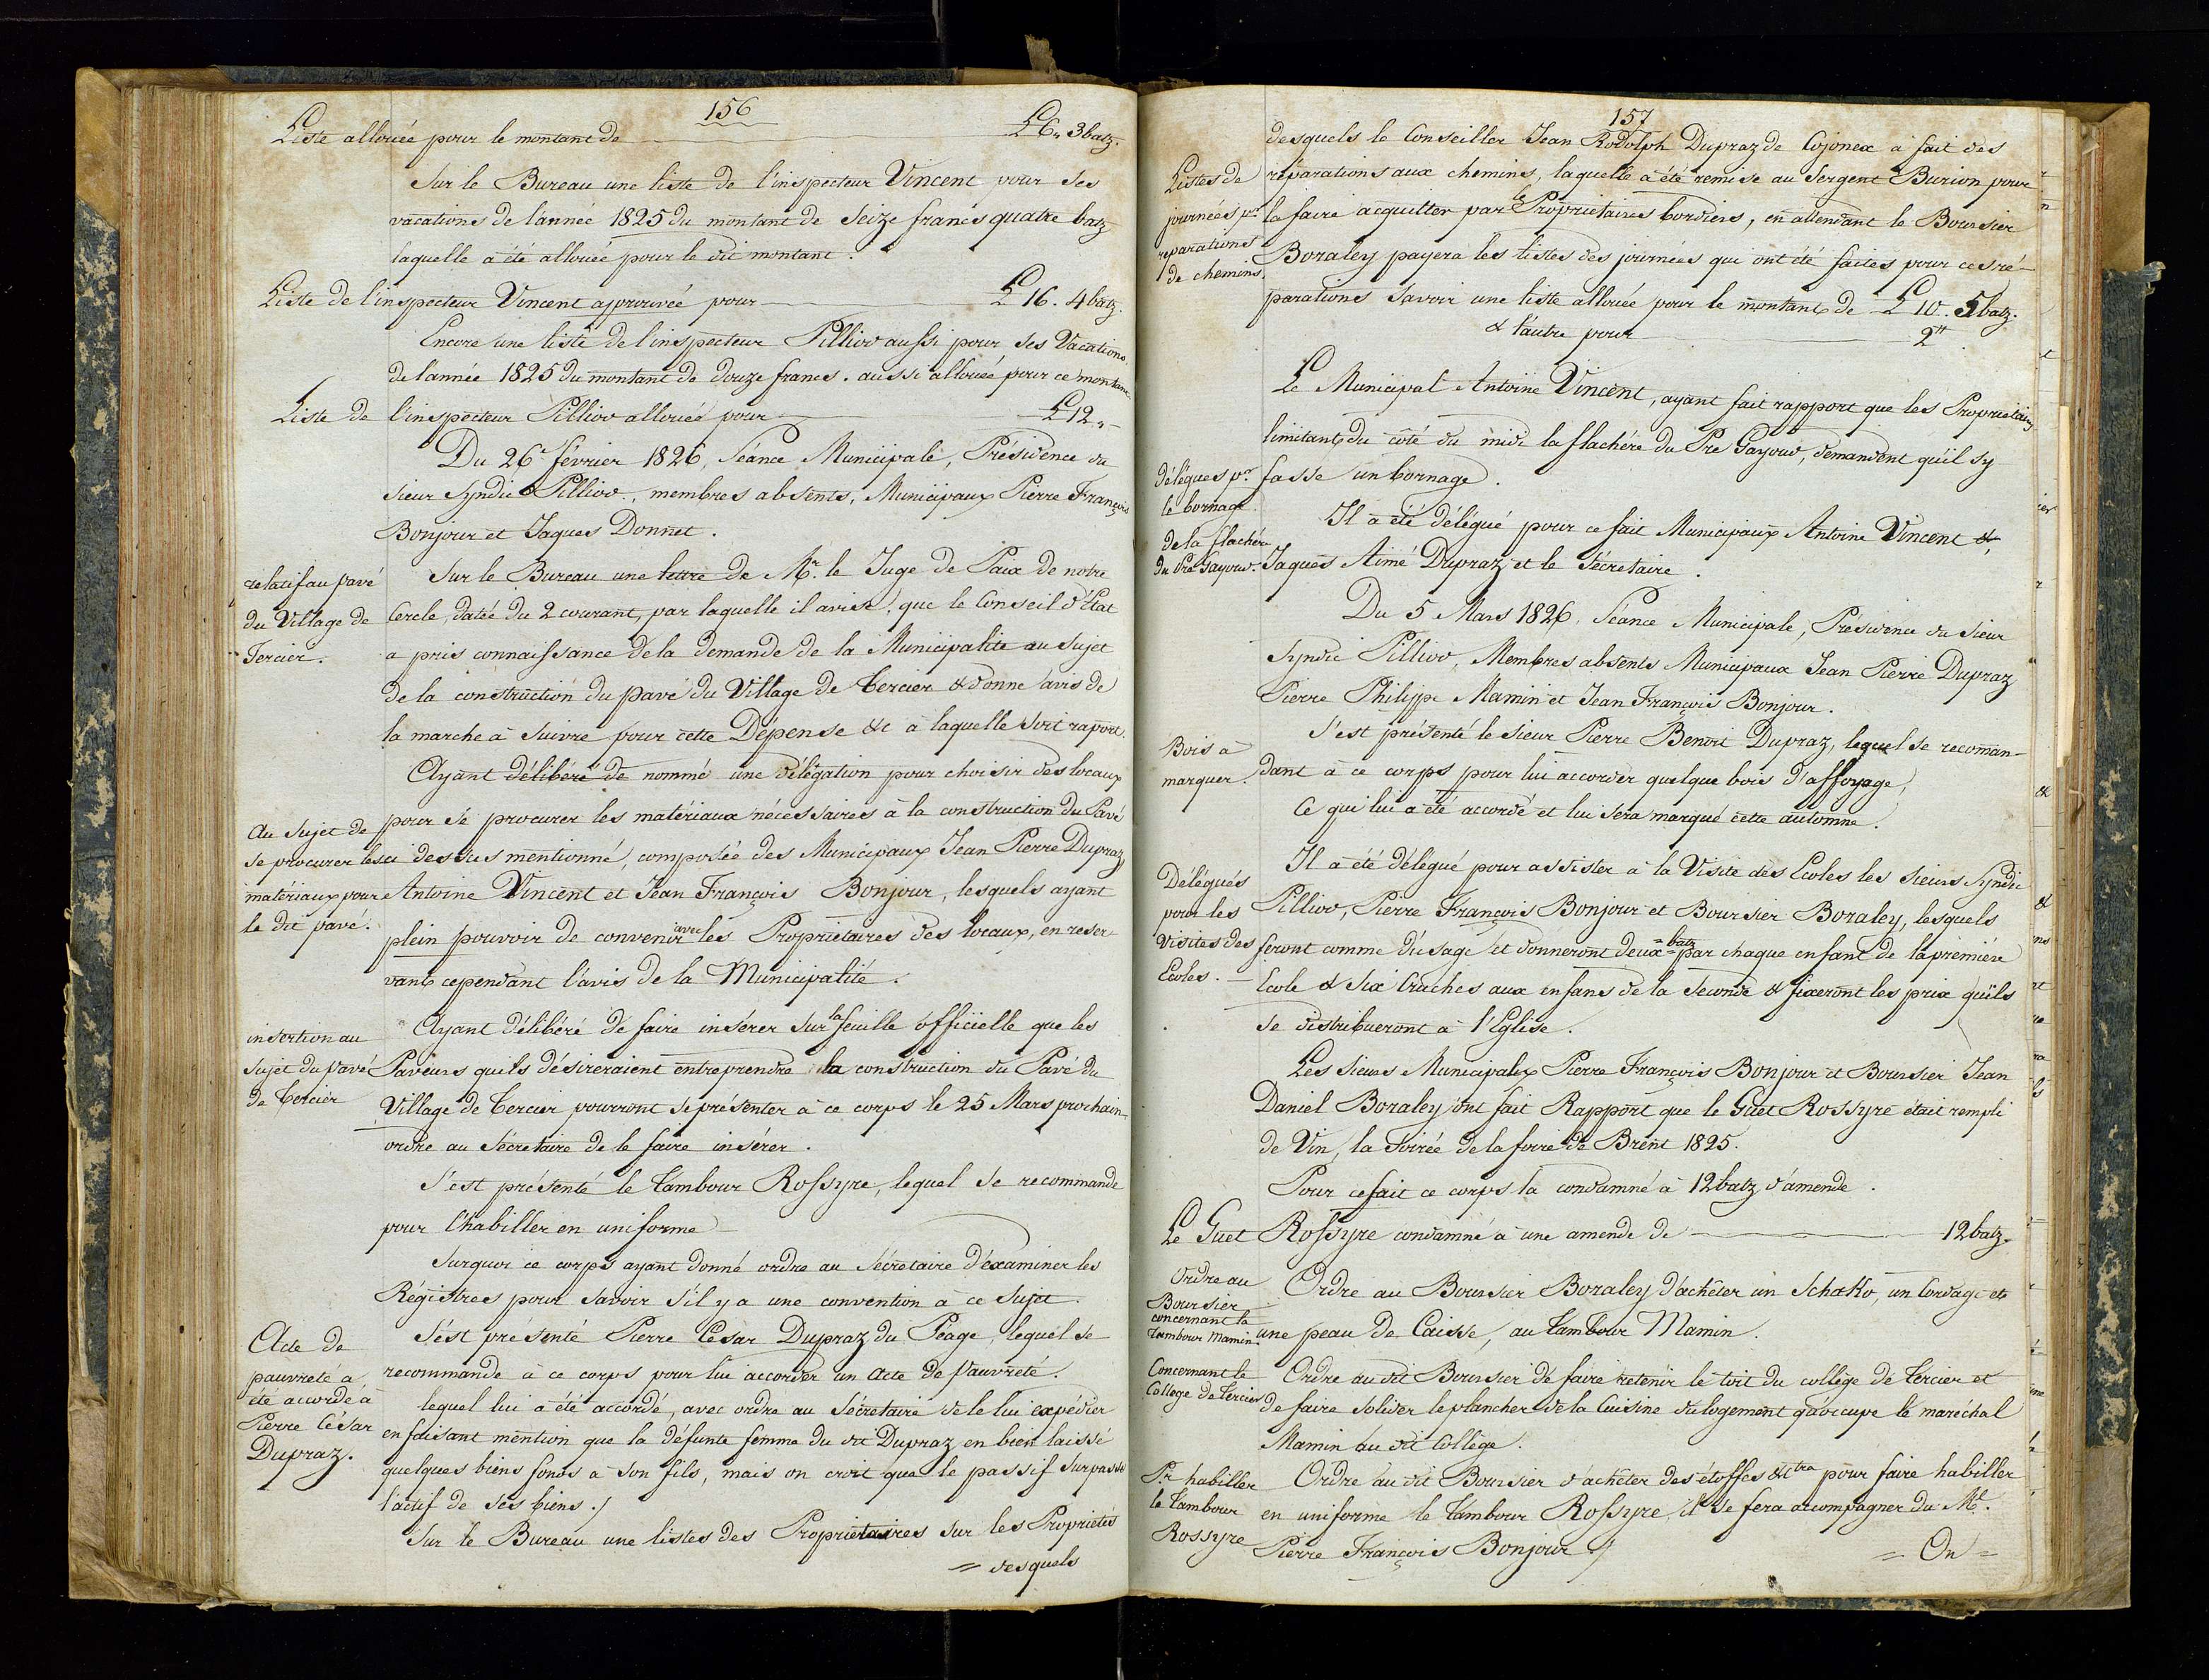 156
Liste allouée pour le montant de L 6 „ 3 batz.
Sur le Bureau une liste de l'inspecteur Vincent pour ses
vacations de l'année 1825 du montant de Seize francs quatre batz
laquelle a été allouée pour le dit montant.
Liste de l'inspecteur Vincent approuvée pour L 16. 4 batz.
Encore une liste de l'inspecteur Pilliod aussi pour ses Vacations
de l'année 1825 du montant de douze francs. aussi allouée pour ce montant
Liste de l'inspecteur Pilliod allouée pour L 12 „ -
Du 26e février 1826, Séance Municipale, Présidence du
sieur Syndic Pilliod., membres absents, Municipaux Pierre François
Bonjour et Jaques Donnet.
relatif au pavé
du Village de
Tercier.
Sur le Bureau une lettre de Mr. le Juge de Paix de notre
Cercle, datée du 2 courant, par laquelle il avise, que le Conseil d'Etat
a pris connaissance de la demande de la Municipalité au sujet
de la construction du pavé du Village de Tercier & donne avis de
la marche à suivre pour cette Dépense &c a laquelle soit raport.
Au sujet de
se procurer les
matériaux pour
le dit pavé.
Ayant délibéré de nommé une délégation pour choisir des locaux
pour se procurer les matériaux nécessaires à la construction du Pavé
ci dessus mentionné, composée des Municipaux Jean Pierre Dupraz
Antoine Vincent et Jean François Bonjour, lesquels ayant
plein pouvoir de convenir avec les Propriétaires des locaux, en reser-
vant cependant l'avis de la Municipalité.
insertion au
sujet du pavé
de Tercier
Ayant délibéré de faire insérer sur la feuille officielle que les
Paveurs quils désireraient entreprendre la construction du Pavé du
Village de Tercier pourront se présenter à ce corps le 25 Mars prochain,
ordre au Sécretaire de le faire insérer.
S'est présenté le tambour Rossyre, lequel se recommande
pour l'habiller en uniforme
Surquoi ce corps ayant donné ordre au Sécrétaire d'éxaminer les
Régistres pour savoir s'il y a une convention à ce sujet
Acte de
pauvreté a
été accordé à
Pierre César
Dupraz.
S'est présenté Pierre César Dupraz du Péage, lequel se
recommande à ce corps pour lui accorder un Acte de Pauvreté.
lequel lui a été accordé, avec ordre au Sécretaire de le lui expédier
en faisant mention que la défunte femme du dit Dupraz en bien laissé
quelques biens fonds à son fils, mais on croit que le passif surpasse
l'actif de ses biens./
Sur le Bureau une listes des Propriétaires sur les Propriétés
= desquels
157
desquels le Conseiller Jean Rodolph Dupraz de Cojonex à fait des
Listes de
journées pr.
reparations
de chemins.
réparations aux chemins, laquelle à été remise au Sergent Burion pour
la faire acquitter par les Propriétaires bordiers, en attendant le Boursier
Boraley payera les listes des journées qui ont été faites pour ces ré-
parations savoir une liste allouée pour le montant de L 10. 5 batz.
& l'autre pour 2 "
Le Municipal Antoine Vincent, ayant fait rapport que les Propriétaires
limitants du côté du midi la flachére du Pre Gayoud, demandent quil sy
fasse un bornage.
délégues pr.
le bornage
de la flachére
du Pré Gayoud.
Il a été délégué pour ce fait Municipaux Antoine Vincent &,
Jaques Aimé Dupraz et le Sécretaire.
Du 5 Mars 1826, Séance Municipale, Présidence du sieur
Syndic Pilliod, Membres absents Municipaux Jean Pierre Dupraz
Pierre Philippe Mamin et Jean François Bonjour.
Bois à
marquer.
S'est présenté le sieur Pierre Benoit Dupraz, lequel se recoman-
dant à ce corps pour lui accorder quelque bois d'affoyage,
Ce qui lui a été accordé et lui sera marqué cette automne.
Délégués
pour les
Visites des
Ecoles.
Il a été délégué pour assister à la Visite des Ecoles les sieurs Syndic
Pilliod, Pierre François Bonjour et Boursier Boraley, lesquels
feront comme d'usage et donneront deux = batz par chaque enfant de la premiére
Ecole & Six Cruches aux enfans de la Seconde & fixeront les prix quils
se distribueront à l'Eglise.
Les sieurs Municipalex Pierre François Bonjour et Boursier Jean
Daniel Boraley ont fait Rapport que le Guet Rossyre était rempli
de Vin, la Soirée de la foire de Brent 1825.
Pour ce fait ce corps la condamné à 12 batz d'amende.
Le Guet Rossyre condamné à une amende de 12 batz.
Ordre au
Boursier
concernant le
tambour Mamin
Ordre au Boursier Boraley d'achéter un Schako, un Cordage et
une peau de Caisse, au tambour Mamin.
Concernant le
College de Tercier
Ordre au dit Boursier de faire retenir le toit du collége de Tercier et
de faire solider le plancher de la Cuisine du logement q'occupe le maréchal
Mamin au dit Collége.
Pr habiller
le tambour
Rossyre
Ordre au dit Boursier d'achéter des étoffes &ctra pour faire habiller
en uniforme le tambour Rossyre, il se fera accompagner du Ml.
Pierre François Bonjour./
= On =